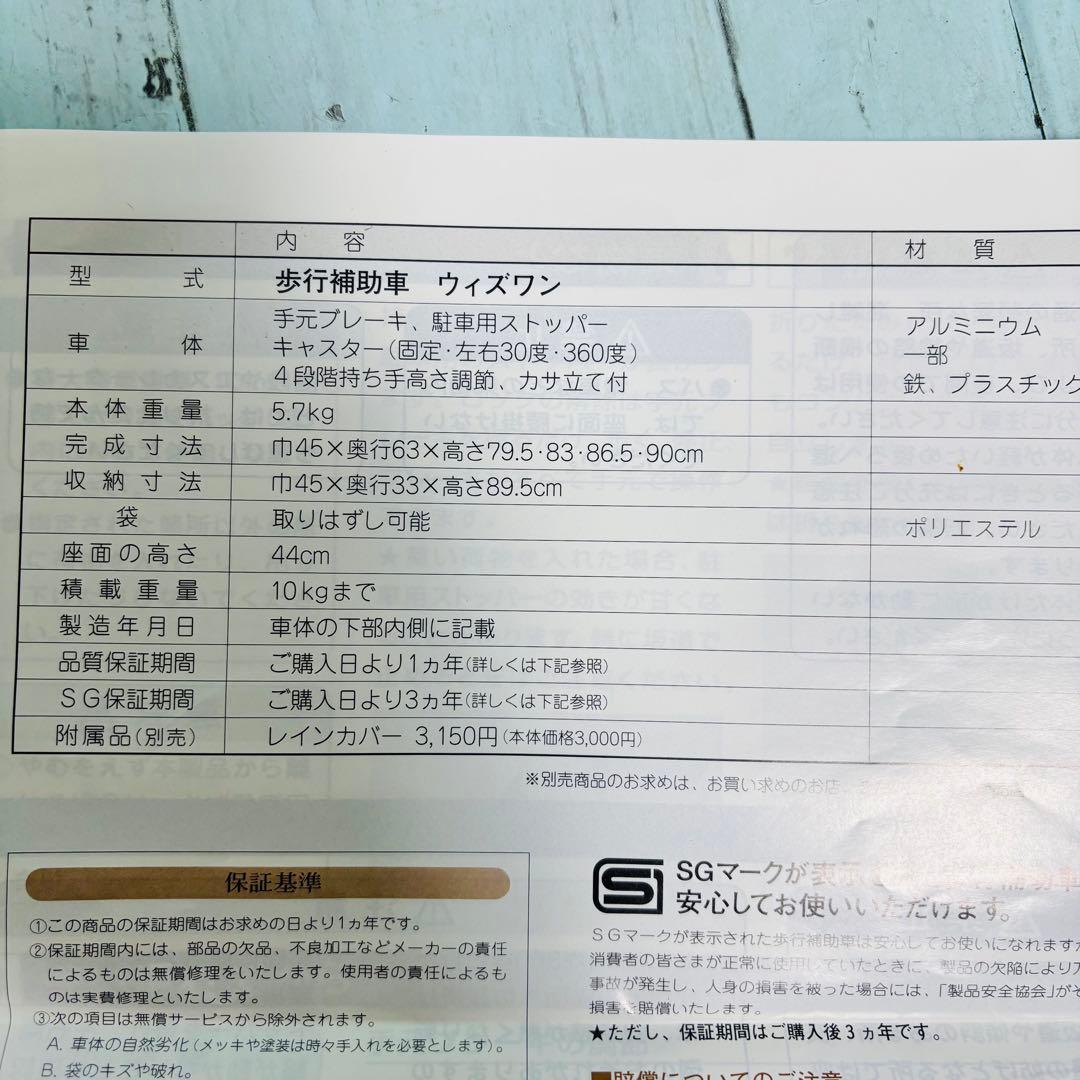 内容 材質
型式 歩行補助車 ウィズワン
車体 手元ブレーキ、駐車用ストッパー
キャスター(固定・左右30度・360度)
4段階持ち手高さ調節、カサ立て付
アルミニウム
一部
鉄、プラスチック
本体重量 5.7kg
完成寸法 巾45×奥行63×高さ79.5・83・86.5・90cm
収納寸法 巾45×奥行33×高さ89.5cm
袋 取りはずし可能 ポリエステル
座面の高さ 44cm
積載重量 10kgまで
製造年月日 車体の下部内側に記載
品質保証期間 ご購入日より1ヵ年(詳しくは下記参照)
SG保証期間 ご購入日より3ヵ年(詳しくは下記参照)
附属品(別売) レインカバー 3,150円(本体価格3,000円)
※別売商品のお求めは、お買い求めのお店
保証基準
①この商品の保証期間はお求めの日より1ヵ年です。
②保証期間内には、部品の欠品、不良加工などメーカーの責任
によるものは無償修理をいたします。使用者の責任によるも
のは実費修理といたします。
③次の項目は無償サービスから除外されます。
A. 車体の自然劣化(メッキや塗装は時々手入れを必要とします)。
B. 袋のキズや破れ。
SGマークが表示 補助車
安心してお使いいただけます。
SGマークが表示された歩行補助車は安心してお使いになれますが
消費者の皆さまが正常に使用していたときに、製品の欠陥により
事故が発生し、人身の損害を被った場合には、「製品安全協会」が
損害を賠償いたします。
★ただし、保証期間はご購入後3ヵ年です。
■賠償についてのご注意